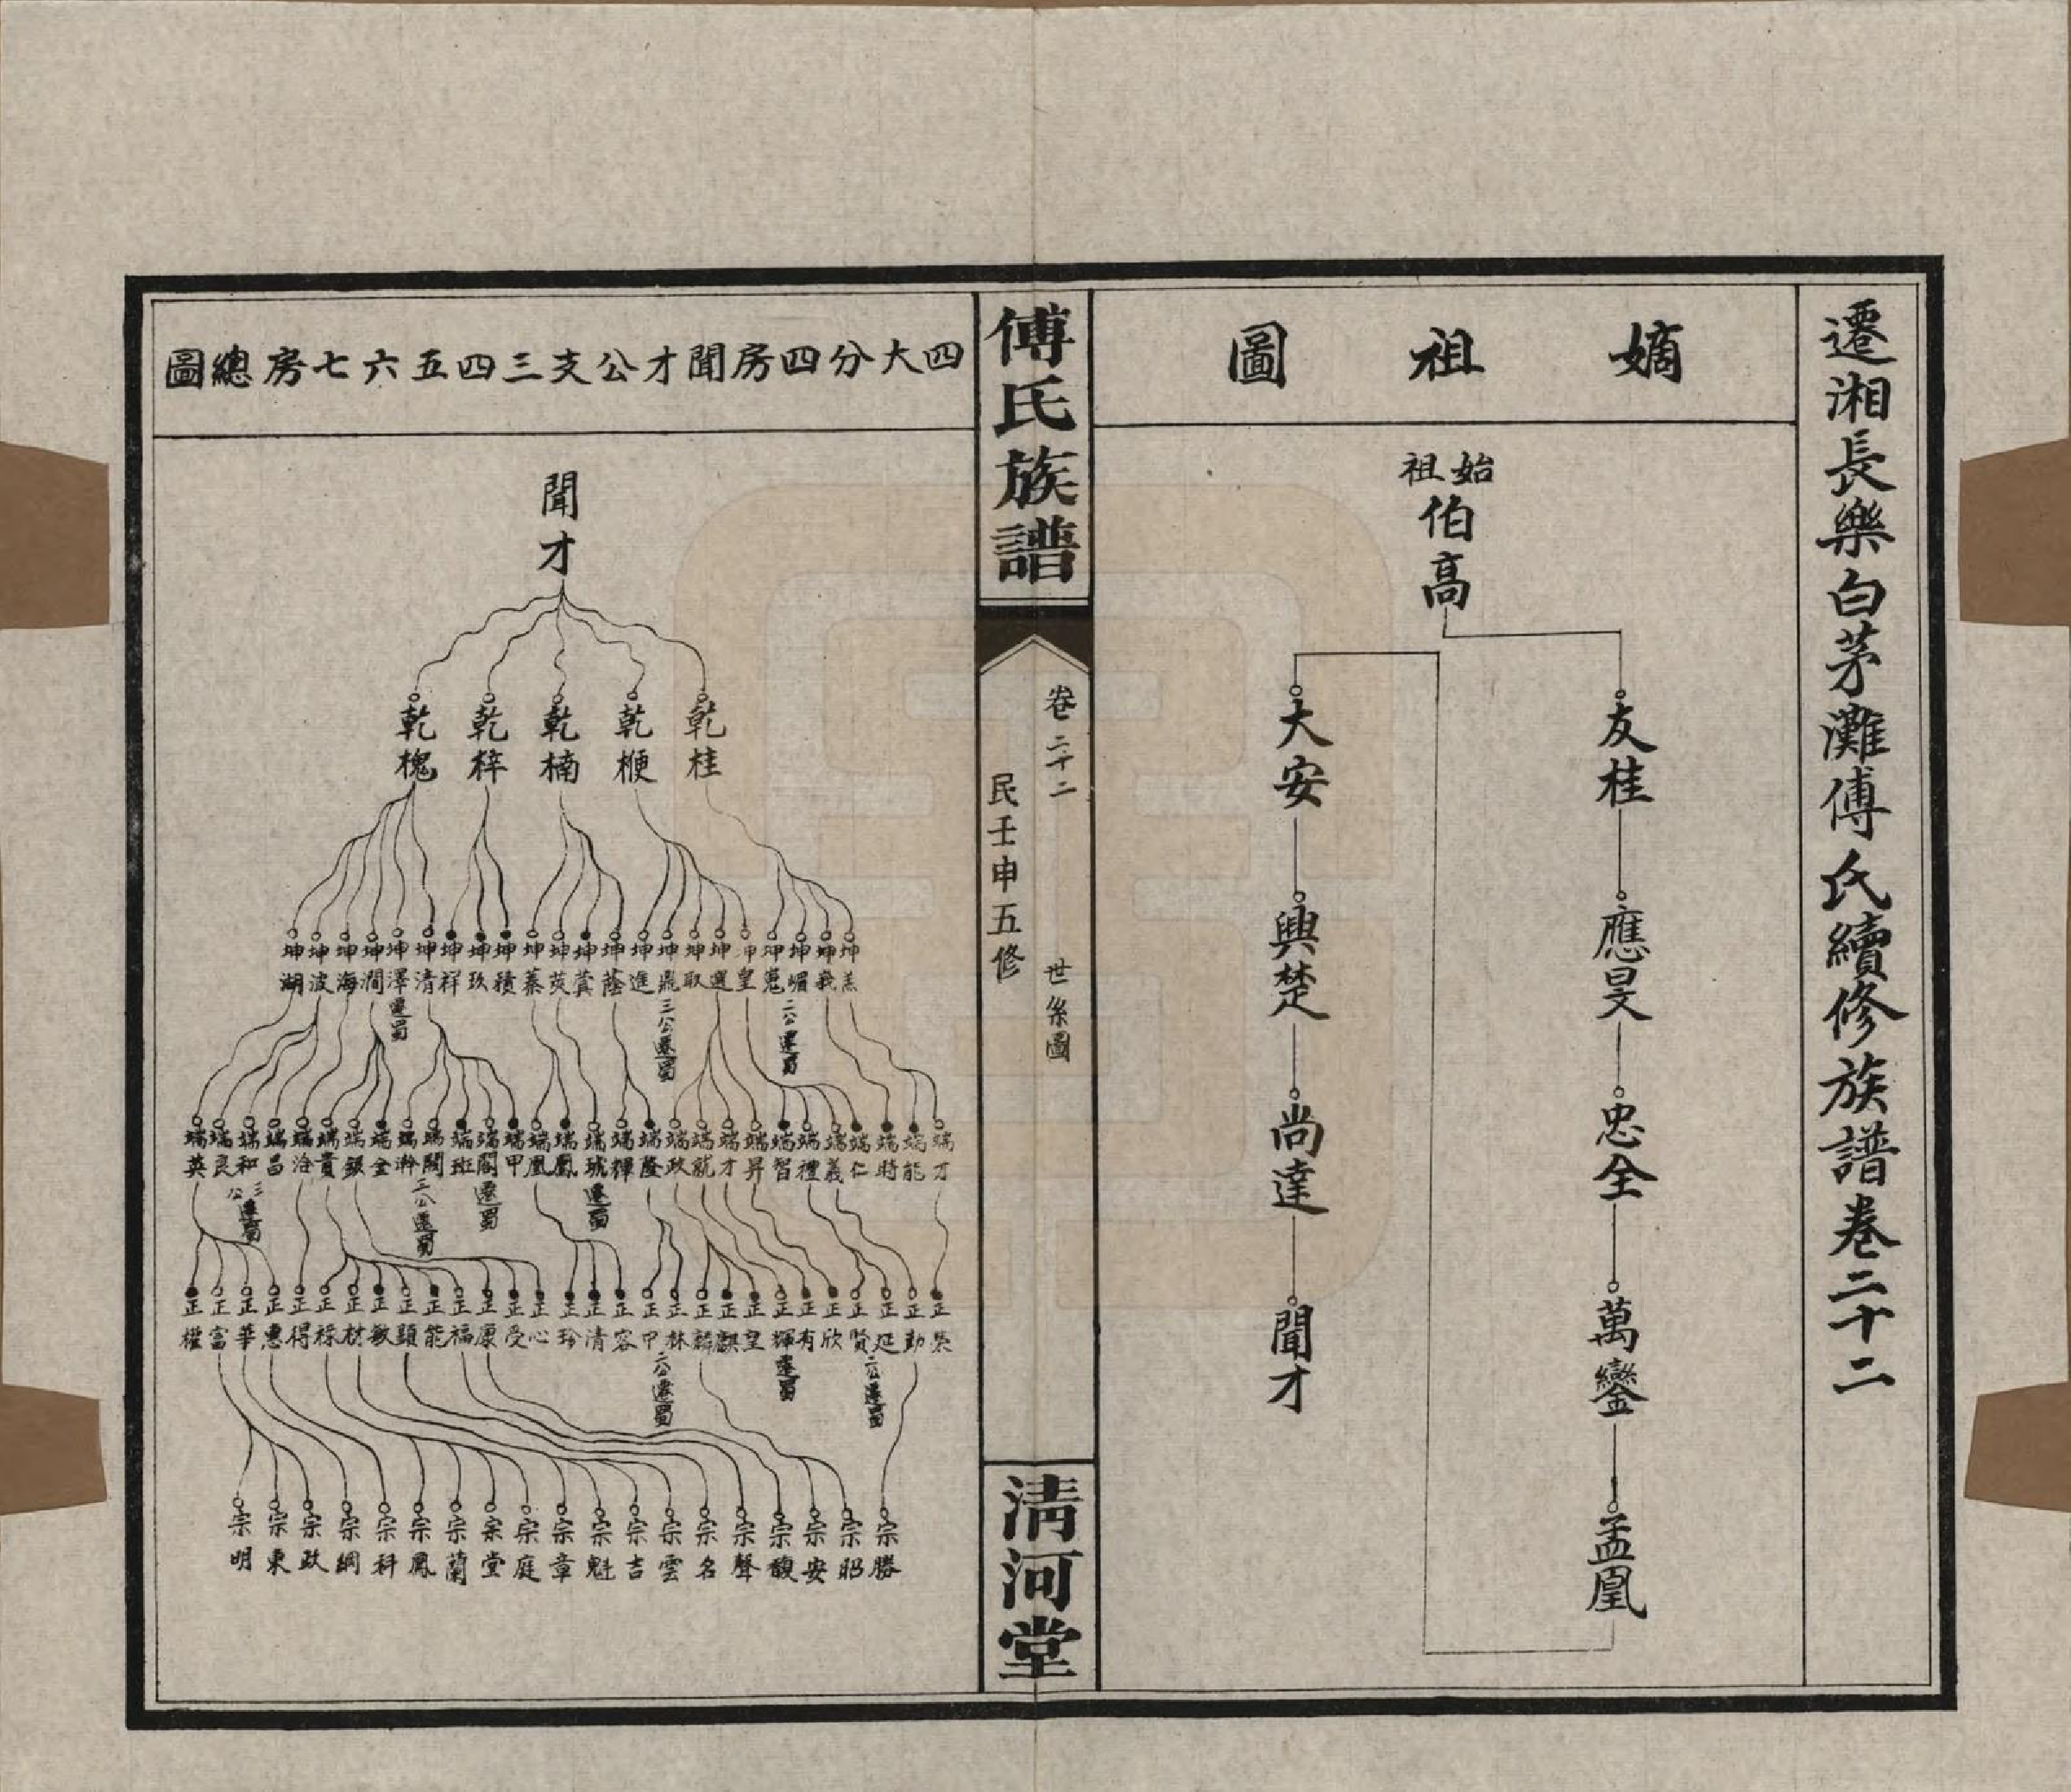 遷湘長樂白茅灘傅氏續修族譜卷二十二
嫡祖圖
始祖
伯高
友桂
應旻
忠全
萬鑾
孟凰
大安
興楚
尚達
聞才
傅氏族譜
卷二十二
世系圖
民壬申五修
清河堂
四大分四房聞才公支三四五六七房總圖
聞才
乾桂
乾楩
乾楠
乾梓
乾槐
坤羔
坤峩
坤嵋
二公遷蜀
坤
坤皇
坤選
坤取
坤鼎
三公遷蜀
坤進
坤蔭
坤蓂
坤萸
坤蓁
坤積
坤玖
坤祥
坤清
坤澤
遷蜀
坤澗
坤海
坤波
坤湖
端才
端能
端時
端仁
端義
端禮
端智
端昇
端才
端就
端政
端隆
端輝
端琥
遷蜀
端鳳
端凰
端甲
端閣
遷蜀
端班
端閗
三公遷蜀
端瀚
端全
端銀
端貴
端治
端昌
端和
三公遷蜀
端良
端英
正
正勤
正延
二公遷蜀
正賢
正欣
正有
正輝
遷蜀
正皇
正麒
正麟
正林
正甲
二公遷蜀
正容
正清
正珍
正心
正受
正康
正福
正能
正顯
正敏
正材
正祿
正得
正惠
正華
正富
正權
宗勝
宗昭
宗安
宗馥
宗聲
宗名
宗雲
宗吉
宗魁
宗章
宗庭
宗堂
宗蘭
宗鳳
宗科
宗綱
宗政
宗東
宗明